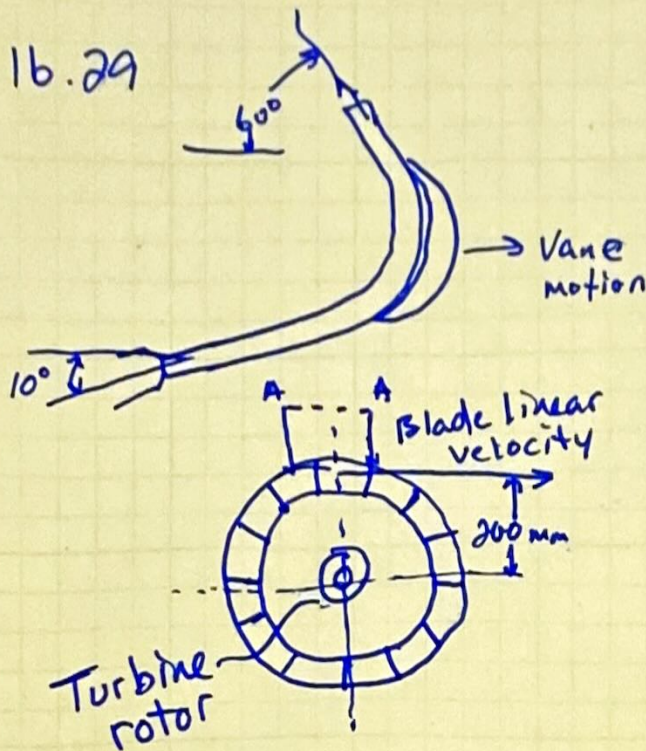 16.29
60°
Vane
motion
10°
A A
Blade linear
velocity
200 mm
Turbine
rotor